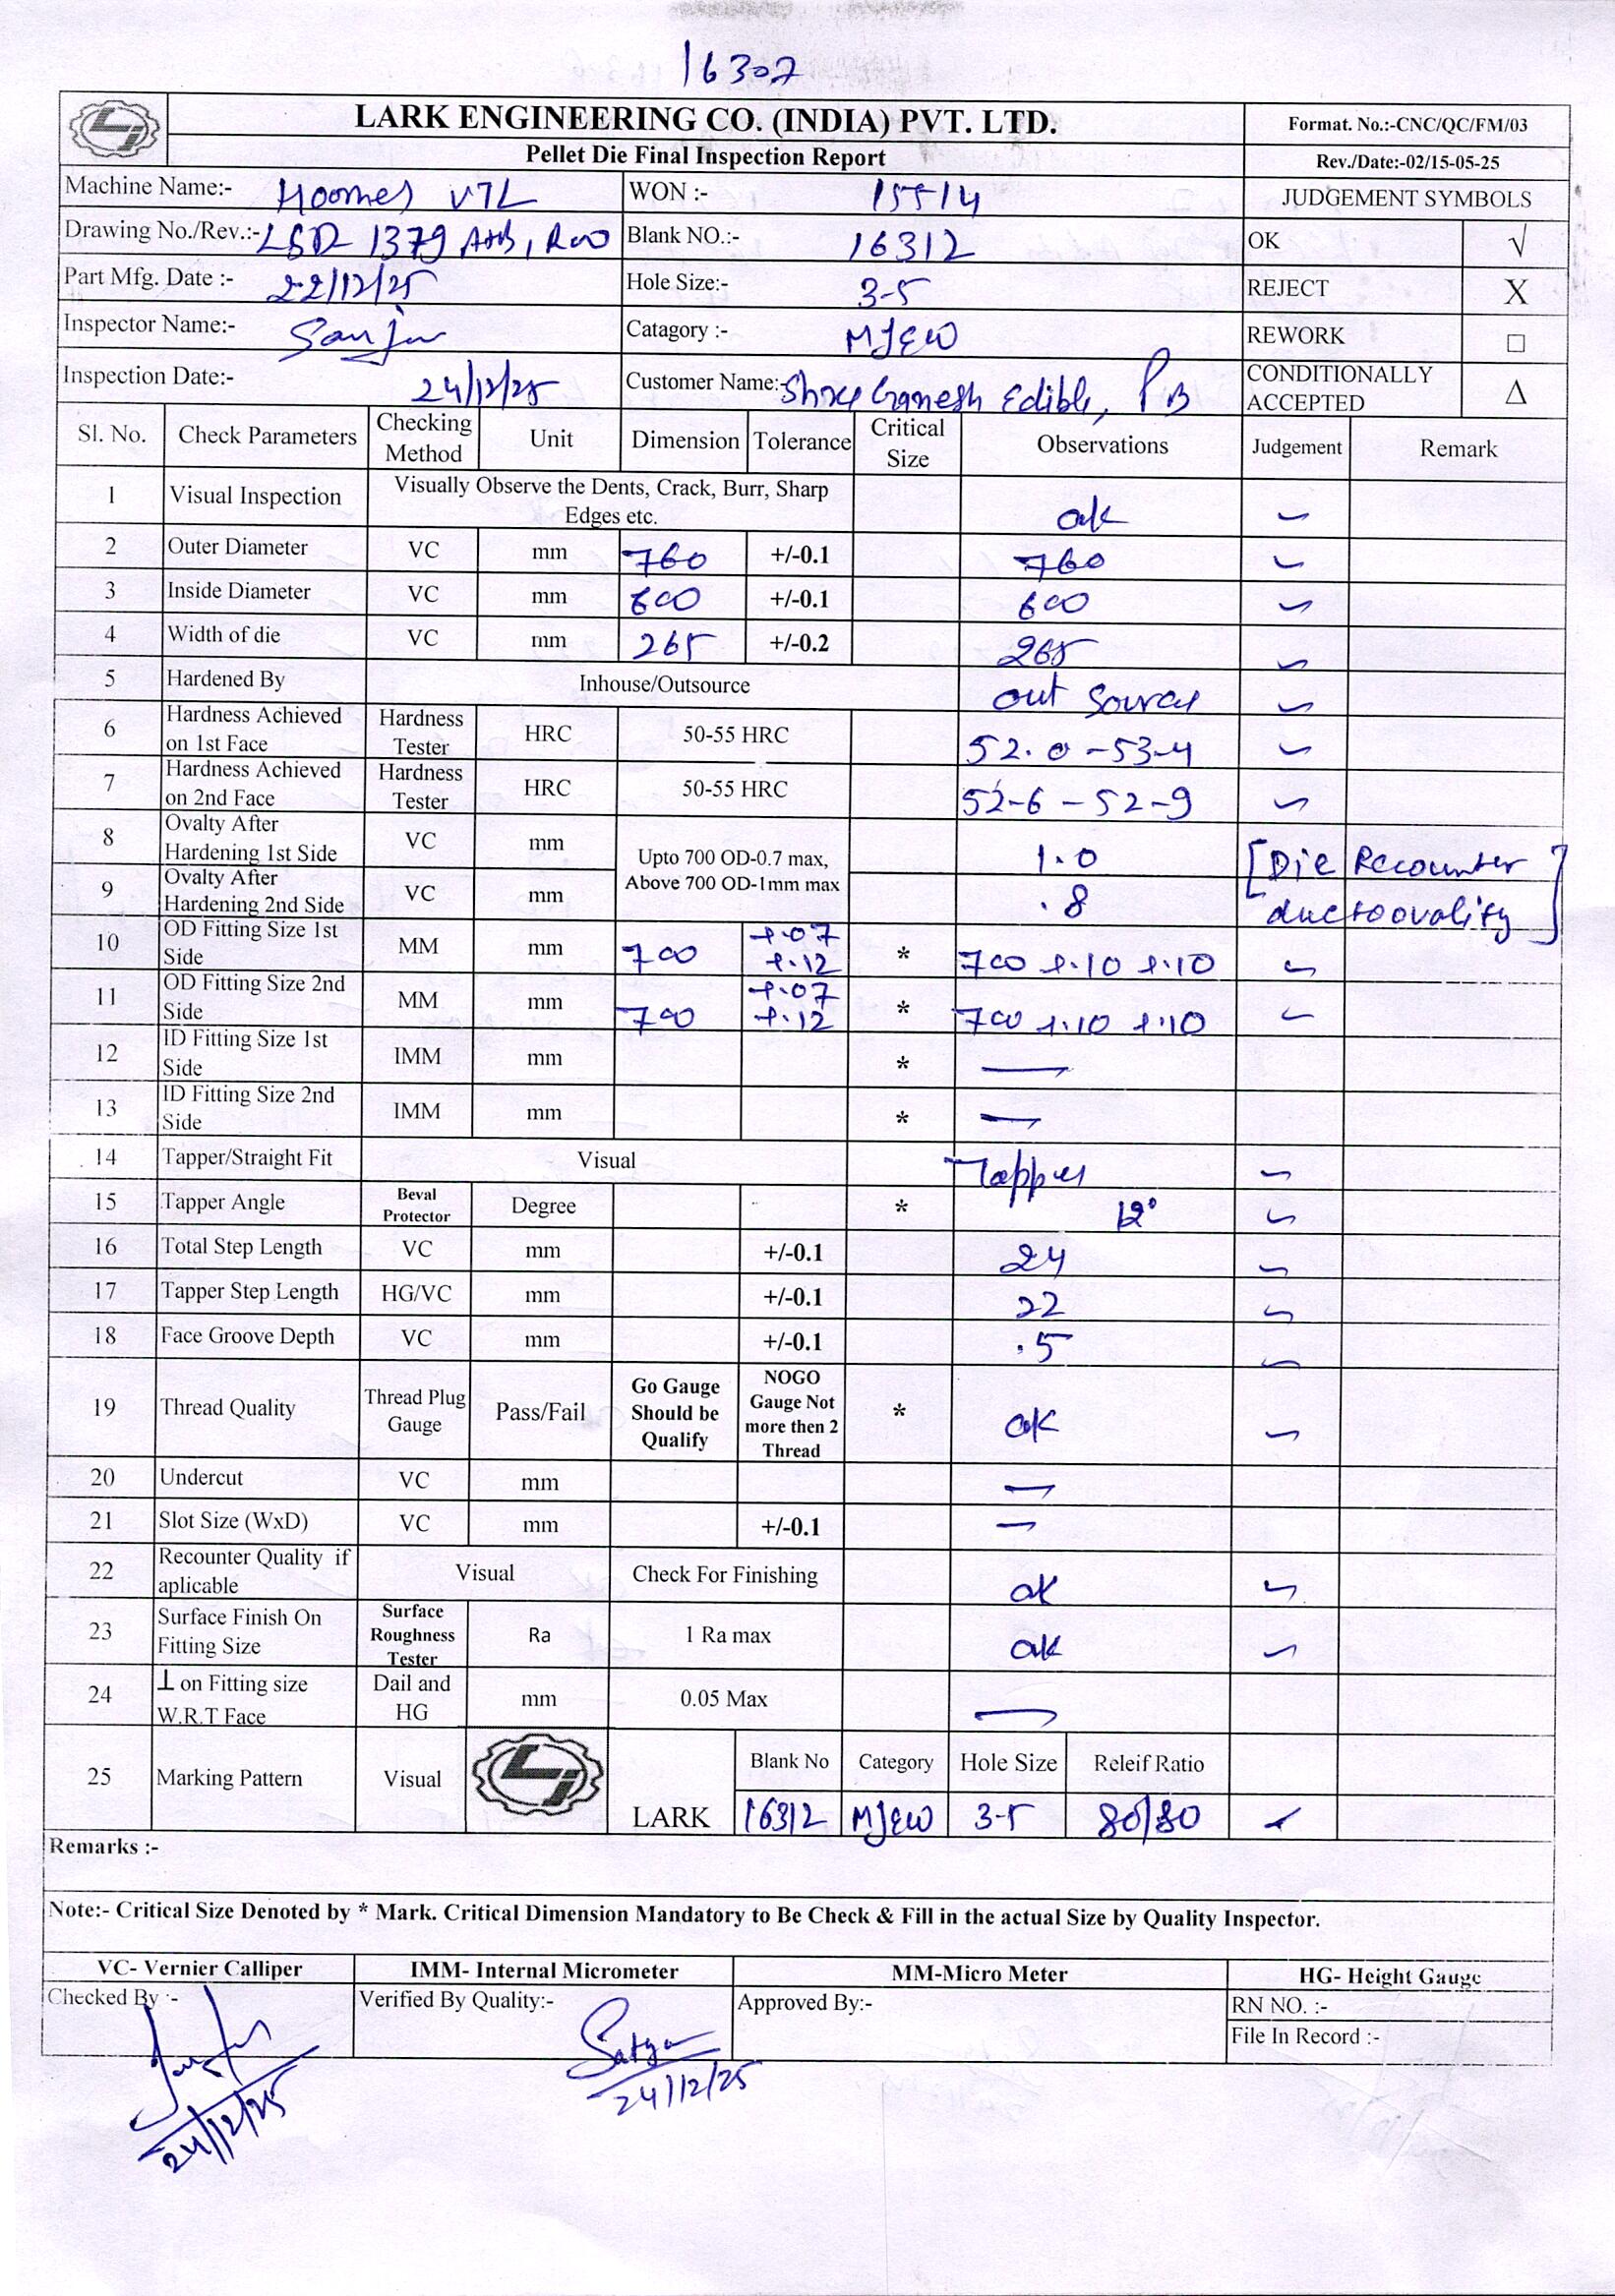 16307
LARK ENGINEERING CO. (INDIA) PVT. LTD.
Format. No.:-CNC/QC/FM/03
Pellet Die Final Inspection Report
Rev./Date:-02/15-05-25
Machine Name:- VTL WON :- 15514 JUDGEMENT SYMBOLS
Drawing No./Rev.:- LSD 1379 Blank NO.:- 16312 OK √
Part Mfg. Date :- 22/12/25 Hole Size:- 3-5 REJECT X
Inspector Name:- Sanju Catagory :- REWORK □
Inspection Date:- 24/12/25 Customer Name:- Shree Ganesh Edible, PB CONDITIONALLY ACCEPTED Δ
Sl. No. Check Parameters Checking Method Unit Dimension Tolerance Critical Size Observations Judgement Remark
1 Visual Inspection Visually Observe the Dents, Crack, Burr, Sharp Edges etc. ok
2 Outer Diameter VC mm 760 +/-0.1 760
3 Inside Diameter VC mm 600 +/-0.1 600
4 Width of die VC mm 265 +/-0.2 265
5 Hardened By Inhouse/Outsource out source
6 Hardness Achieved on 1st Face Hardness Tester HRC 50-55 HRC 52.0 - 53-4
7 Hardness Achieved on 2nd Face Hardness Tester HRC 50-55 HRC 52-6 - 52-9
8 Ovalty After Hardening 1st Side VC mm Upto 700 OD-0.7 max, 1.0 [Die Recounter
9 Ovalty After Hardening 2nd Side VC mm Above 700 OD-1mm max .8 due to ovality]
10 OD Fitting Size 1st Side MM mm 700 +.07 +.12 * 700 +.10 +.10
11 OD Fitting Size 2nd Side MM mm 700 +.07 +.12 * 700 +.10 +.10
12 ID Fitting Size 1st Side IMM mm * —
13 ID Fitting Size 2nd Side IMM mm * —
14 Tapper/Straight Fit Visual Tapper
15 Tapper Angle Beval Protector Degree * 12°
16 Total Step Length VC mm +/-0.1 24
17 Tapper Step Length HG/VC mm +/-0.1 22
18 Face Groove Depth VC mm +/-0.1 .5
19 Thread Quality Thread Plug Gauge Pass/Fail Go Gauge Should be Qualify NOGO Gauge Not more then 2 Thread * ok
20 Undercut VC mm —
21 Slot Size (WxD) VC mm +/-0.1 —
22 Recounter Quality if aplicable Visual Check For Finishing ok
23 Surface Finish On Fitting Size Surface Roughness Tester Ra 1 Ra max ok
24 ⊥ on Fitting size W.R.T Face Dail and HG mm 0.05 Max —
25 Marking Pattern Visual LARK Blank No Category Hole Size Releif Ratio
16312 3-5 80/80
Remarks :-
Note:- Critical Size Denoted by * Mark. Critical Dimension Mandatory to Be Check & Fill in the actual Size by Quality Inspector.
VC- Vernier Calliper IMM- Internal Micrometer MM-Micro Meter HG- Height Gauge
Checked By :- Verified By Quality:- Approved By:- RN NO. :-
File In Record :-
Satya
24/12/25 24/12/25